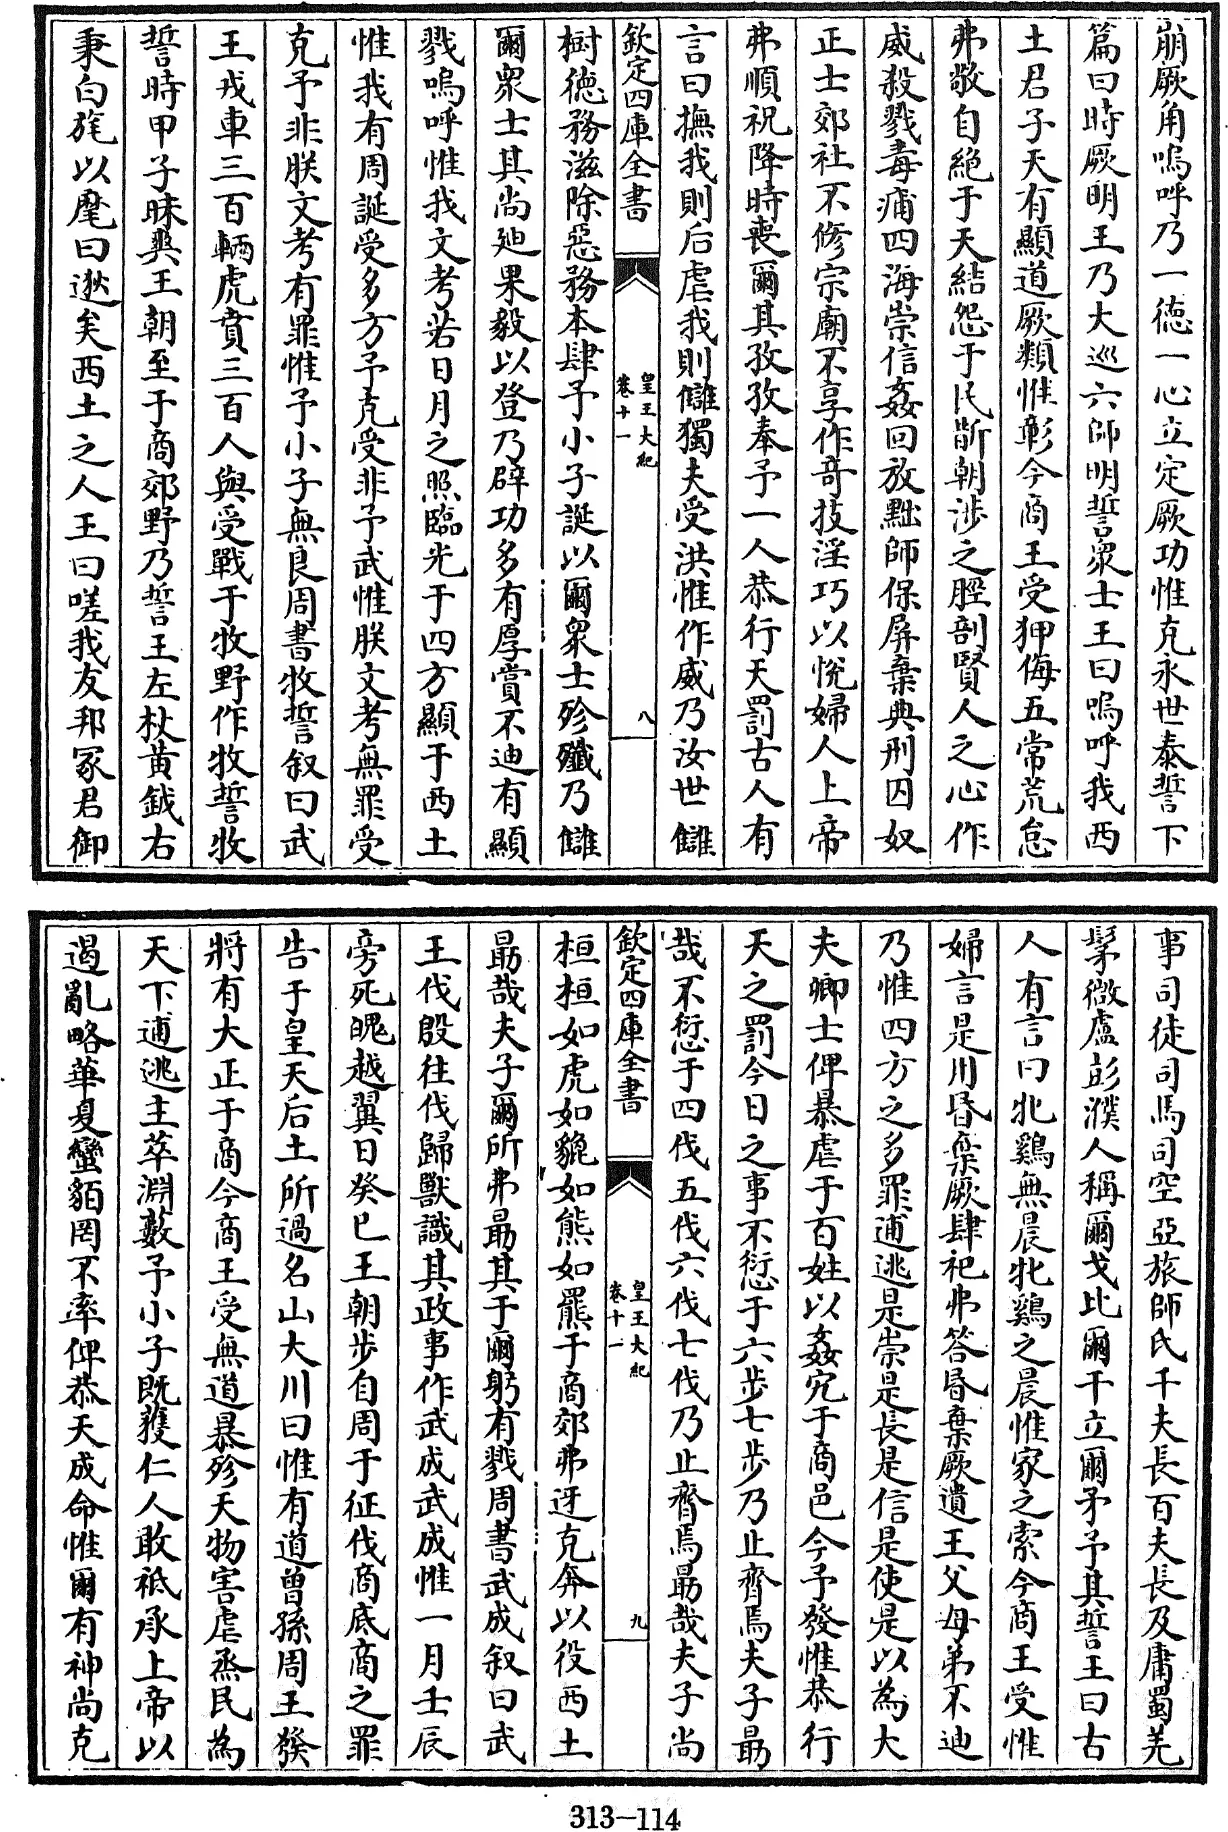 崩厥角嗚呼乃一德一心立定厥功惟克永世泰誓下
篇曰時厥明王乃大巡六師明誓衆士王曰嗚呼我西
土君子天有顯道厥類惟彰今商王受狎侮五常荒怠
弗敬自絶于天結怨于民斮朝涉之脛剖賢人之心作
威殺戮毒痡四海崇信姦回放黜師保屏棄典刑囚奴
正士郊社不修宗廟不享作竒技淫巧以悅婦人上帝
弗順祝降時喪爾其孜孜奉予一人恭行天罰古人有
言曰撫我則后虐我則讎獨夫受洪惟作威乃汝世讎
欽定四庫全書
皇王大紀
卷十一
八
樹德務滋除惡務本肆予小子誕以爾衆士殄殲乃讎
爾衆士其尚迪果毅以登乃辟功多有厚賞不迪有顯
戮嗚呼惟我文考若日月之照臨光于四方顯于西土
惟我有周誕受多方予克受非予武惟朕文考無罪受
克予非朕文考有罪惟予小子無良周書牧誓叙曰武
王戎車三百輛虎賁三百人與受戰于牧野作牧誓牧
誓時甲子昧爽王朝至于商郊野乃誓王左杖黄鉞右
秉白旄以麾曰逖矣西土之人王曰嗟我友邦冢君御
事司徒司馬司空亞旅師氏千夫長百夫長及庸蜀羌
髳微盧彭濮人稱爾戈比爾干立爾矛予其誓王曰古
人有言曰牝鷄無晨牝鷄之晨惟家之索今商王受惟
婦言是用昏棄厥肆祀弗答昏棄厥遺王父母弟不迪
乃惟四方之多罪逋逃是崇是長是信是使是以為大
夫卿士俾暴虐于百姓以姦宄于商邑今予發惟恭行
天之罰今日之事不愆于六步七步乃止齊焉夫子勗
哉不愆于四伐五伐六伐七伐乃止齊焉勗哉夫子尚
欽定四庫全書
皇王大紀
卷十一
九
桓桓如虎如貔如熊如羆于商郊弗迓克奔以役西土
勗哉夫子爾所弗勗其于爾躬有戮周書武成叙曰武
王伐殷往伐歸獸識其政事作武成武成惟一月壬辰
旁死魄越翼日癸巳王朝步自周于征伐商底商之罪
告于皇天后土所過名山大川曰惟有道曾孫周王發
將有大正于商今商王受無道暴殄天物害虐烝民為
天下逋逃主萃淵藪予小子既獲仁人敢祗承上帝以
遏亂略華夏蠻貊罔不率俾恭天成命惟爾有神尚克
313-114